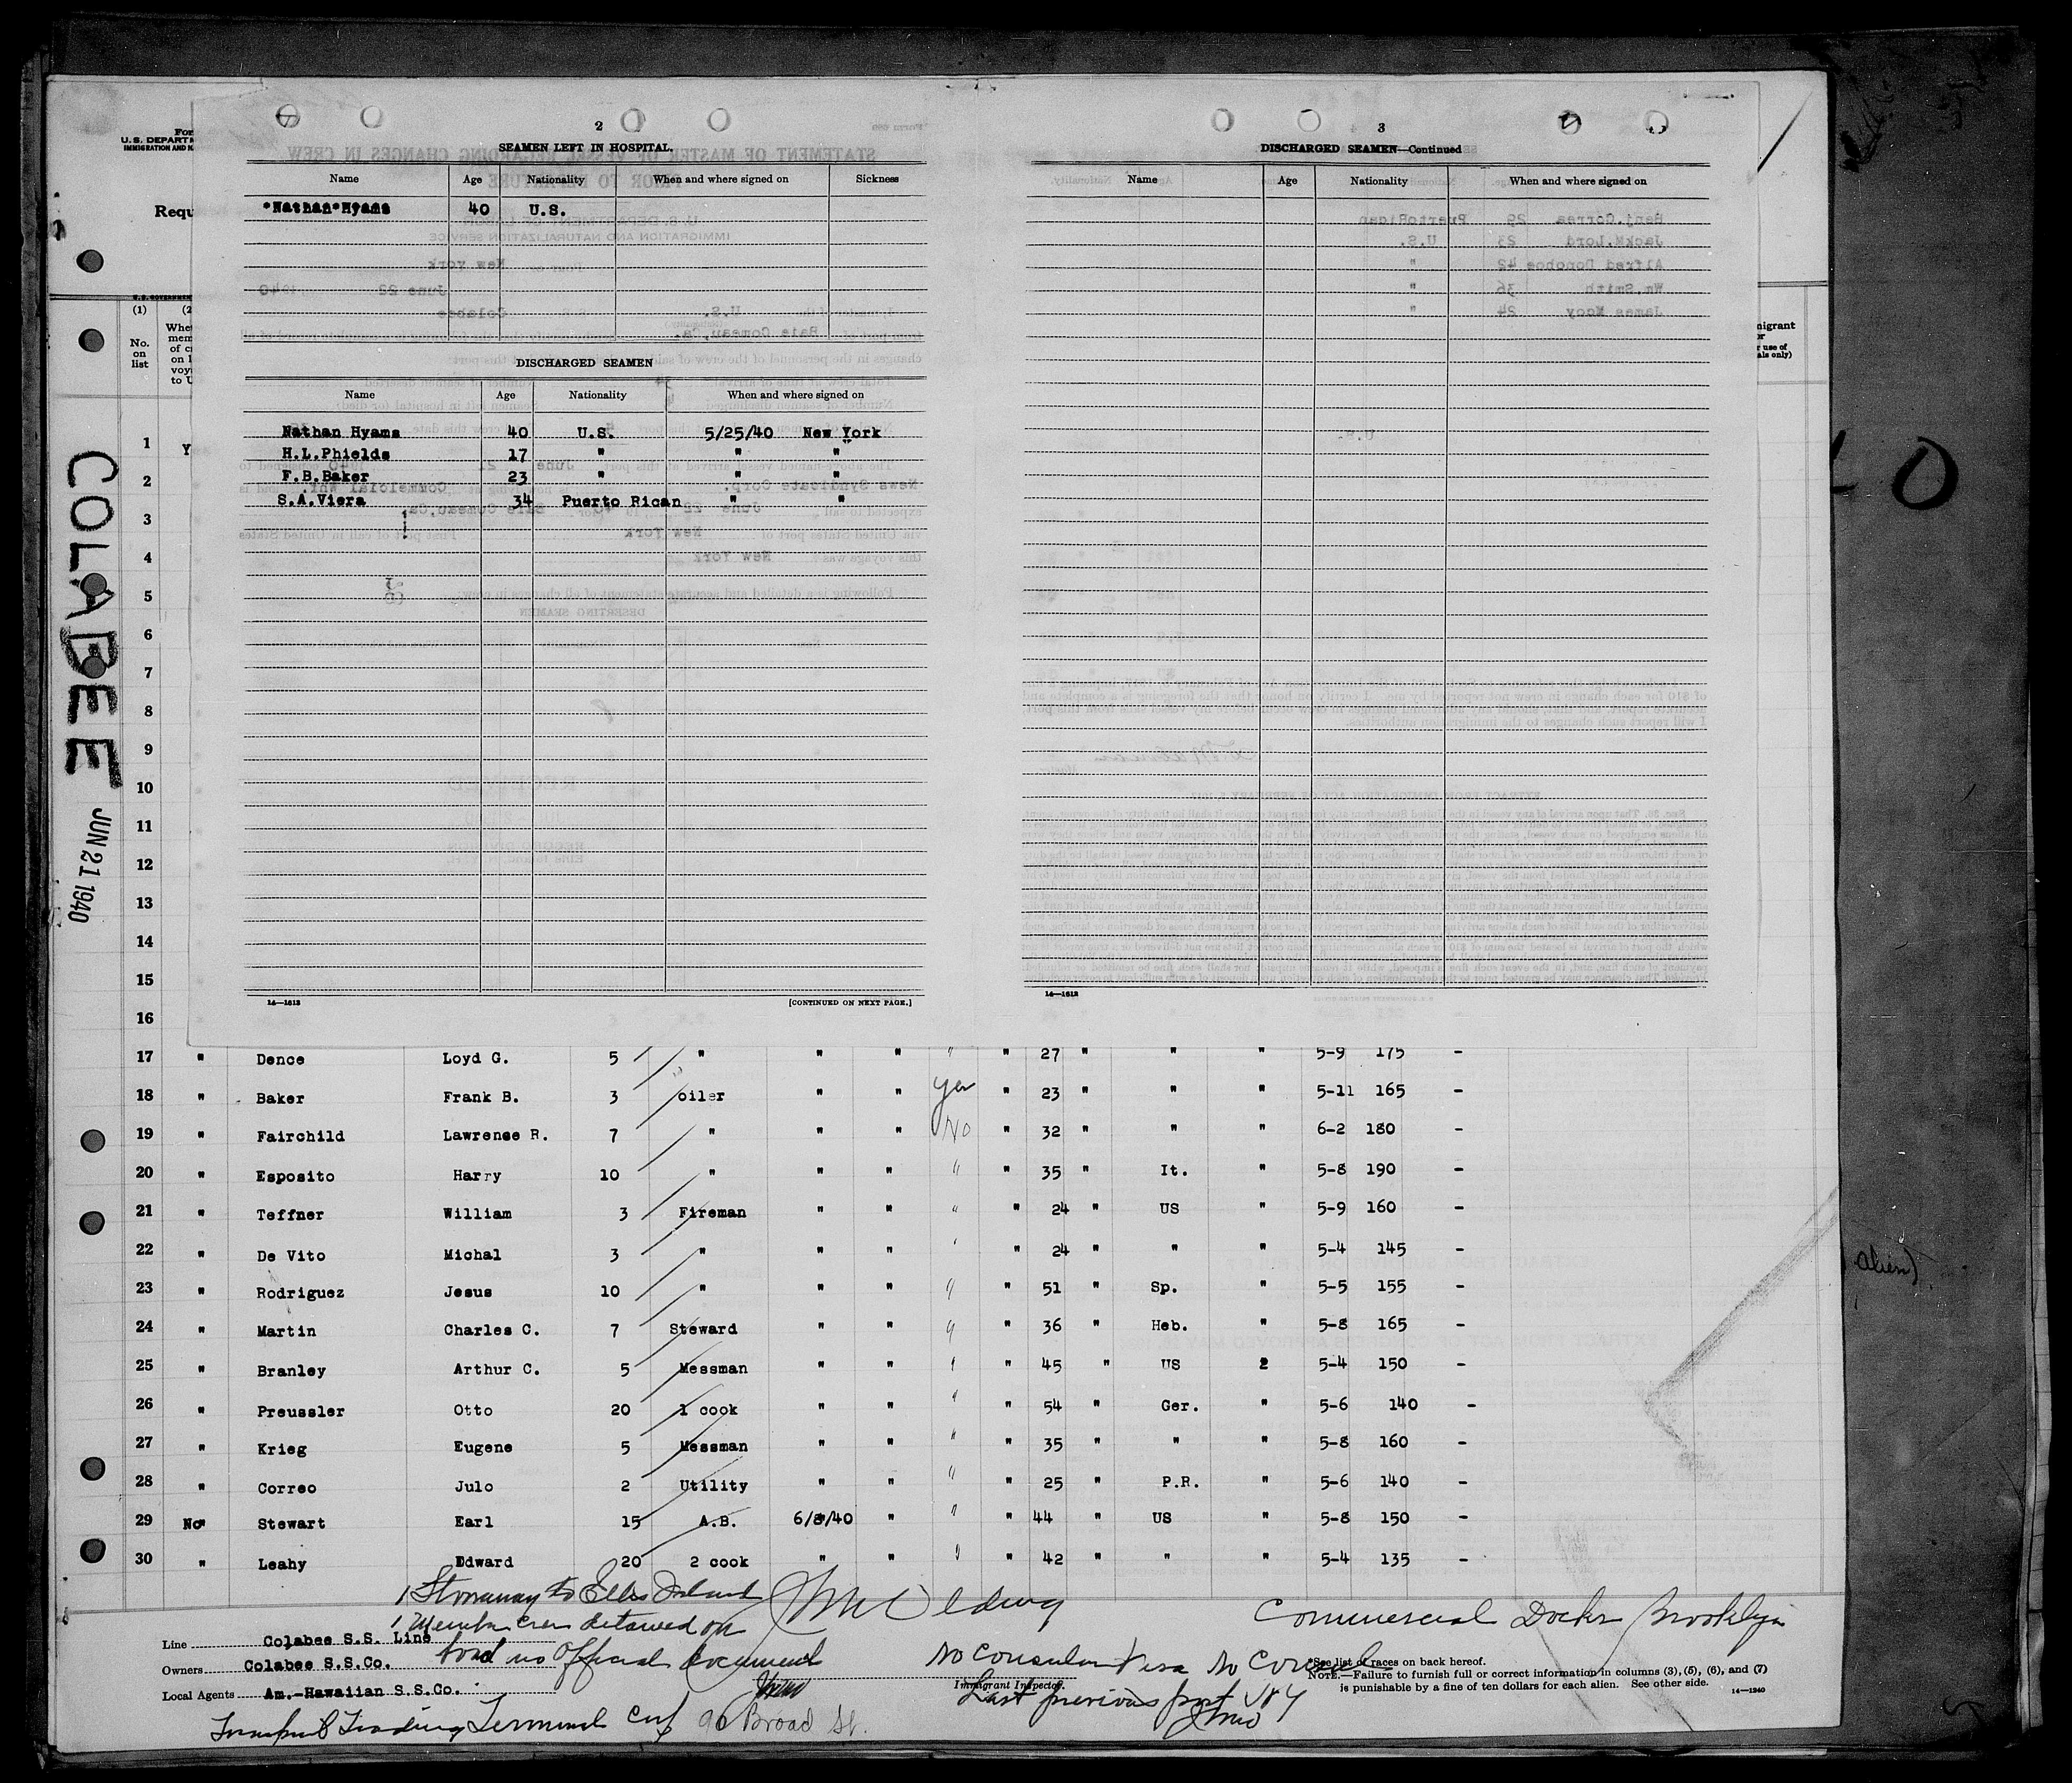 For
U.S. DEPARTM
IMMIGRATION AND N
Requ
U.S. GOVERNMENT
(1) (2
No. on list
Whet
mem
of c
on l
voy
to U
COLABEE JUN 21 1940
2
SEAMEN LEFT IN HOSPITAL
Name Age Nationality When and where signed on Sickness
Nathan Hyams 40 U.S.
DISCHARGED SEAMEN
Name Age Nationality When and where signed on
Nathan Hyams 40 U.S. 5/25/40 New York
H.L.Phields 17 " " "
F.B.Baker 23 " " "
S.A.Viera 34 Puerto Rican " "
14—1613 [CONTINUED ON NEXT PAGE.]
3
DISCHARGED SEAMEN—Continued
Name Age Nationality When and where signed on
14—1613
migrant
or
r use of
als only)
1 Y
2
3
4
5
6
7
8
9
10
11
12
13
14
15
16
17 " Dence Loyd G. 5 " " " " " 27 " " " 5-9 175 -
18 " Baker Frank B. 3 oiler " " yes " 23 " " " 5-11 165 -
19 " Fairchild Lawrense R. 7 " " " No " 32 " " " 6-2 180 -
20 " Esposito Harry 10 " " " " " 35 " It. " 5-8 190 -
21 " Teffner William 3 Fireman " " " " 24 " US " 5-9 160 -
22 " De Vito Michal 3 " " " ' " 24 " " " 5-4 145 -
23 " Rodriguez Jesus 10 " " " " " 51 " Sp. " 5-5 155 -
24 " Martin Charles C. 7 Steward " " " " 36 " Heb. " 5-8 165 -
25 " Branley Arthur C. 5 Messman " " " " 45 " US " 5-4 150 -
26 " Preussler Otto 20 1 cook " " " " 54 " Ger. " 5-6 140 -
27 " Krieg Eugene 5 Messman " " " " 35 " " " 5-8 160 -
28 " Correo Julo 2 Utility " " " " 25 " P.R. " 5-6 140 -
29 No" Stewart Earl 15 A.B. 6/8/40 " " " 44 " US " 5-8 150 -
30 " Leahy Edward 20 2 cook " " " " 42 " " " 5-4 135 -
1 Stowaway to Ellis Island
1 Member crew detained on
board no Official document
Commercial Docks Brooklyn
Line Colabee S.S. Line
Owners Colabee S.S.Co.
Local Agents Am.-Hawaiian S.S.Co.
No Consular Visa No Consul
Immigrant Inspector.
Last previous port
*See list of races on back hereof.
NOTE.—Failure to furnish full or correct information in columns (3), (5), (6), and (7)
is punishable by a fine of ten dollars for each alien. See other side.
14—1240
Trading Terminal Corp 90 Broad St.
alien)